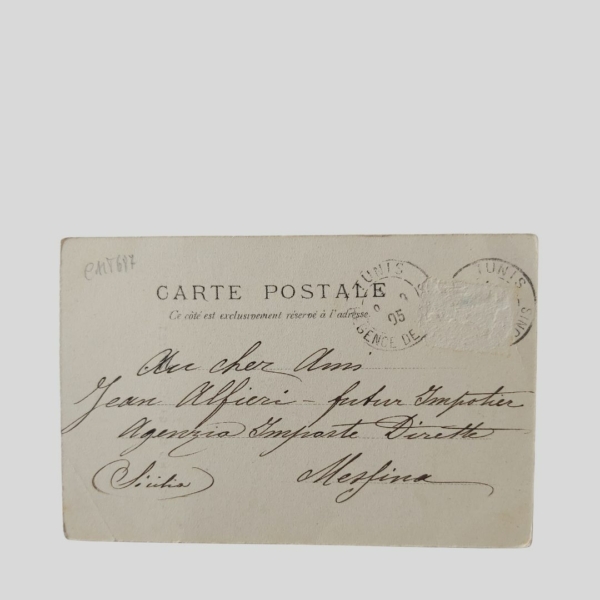 CARTE POSTALE
Ce côté est exclusivement réservé à l'adresse
TUNIS
05
AGENCE DE
TUNIS
Au cher Ami
Jean Alfieri - futur Impotier
Agenzia Imposte Dirette
(Sicilia) Messina